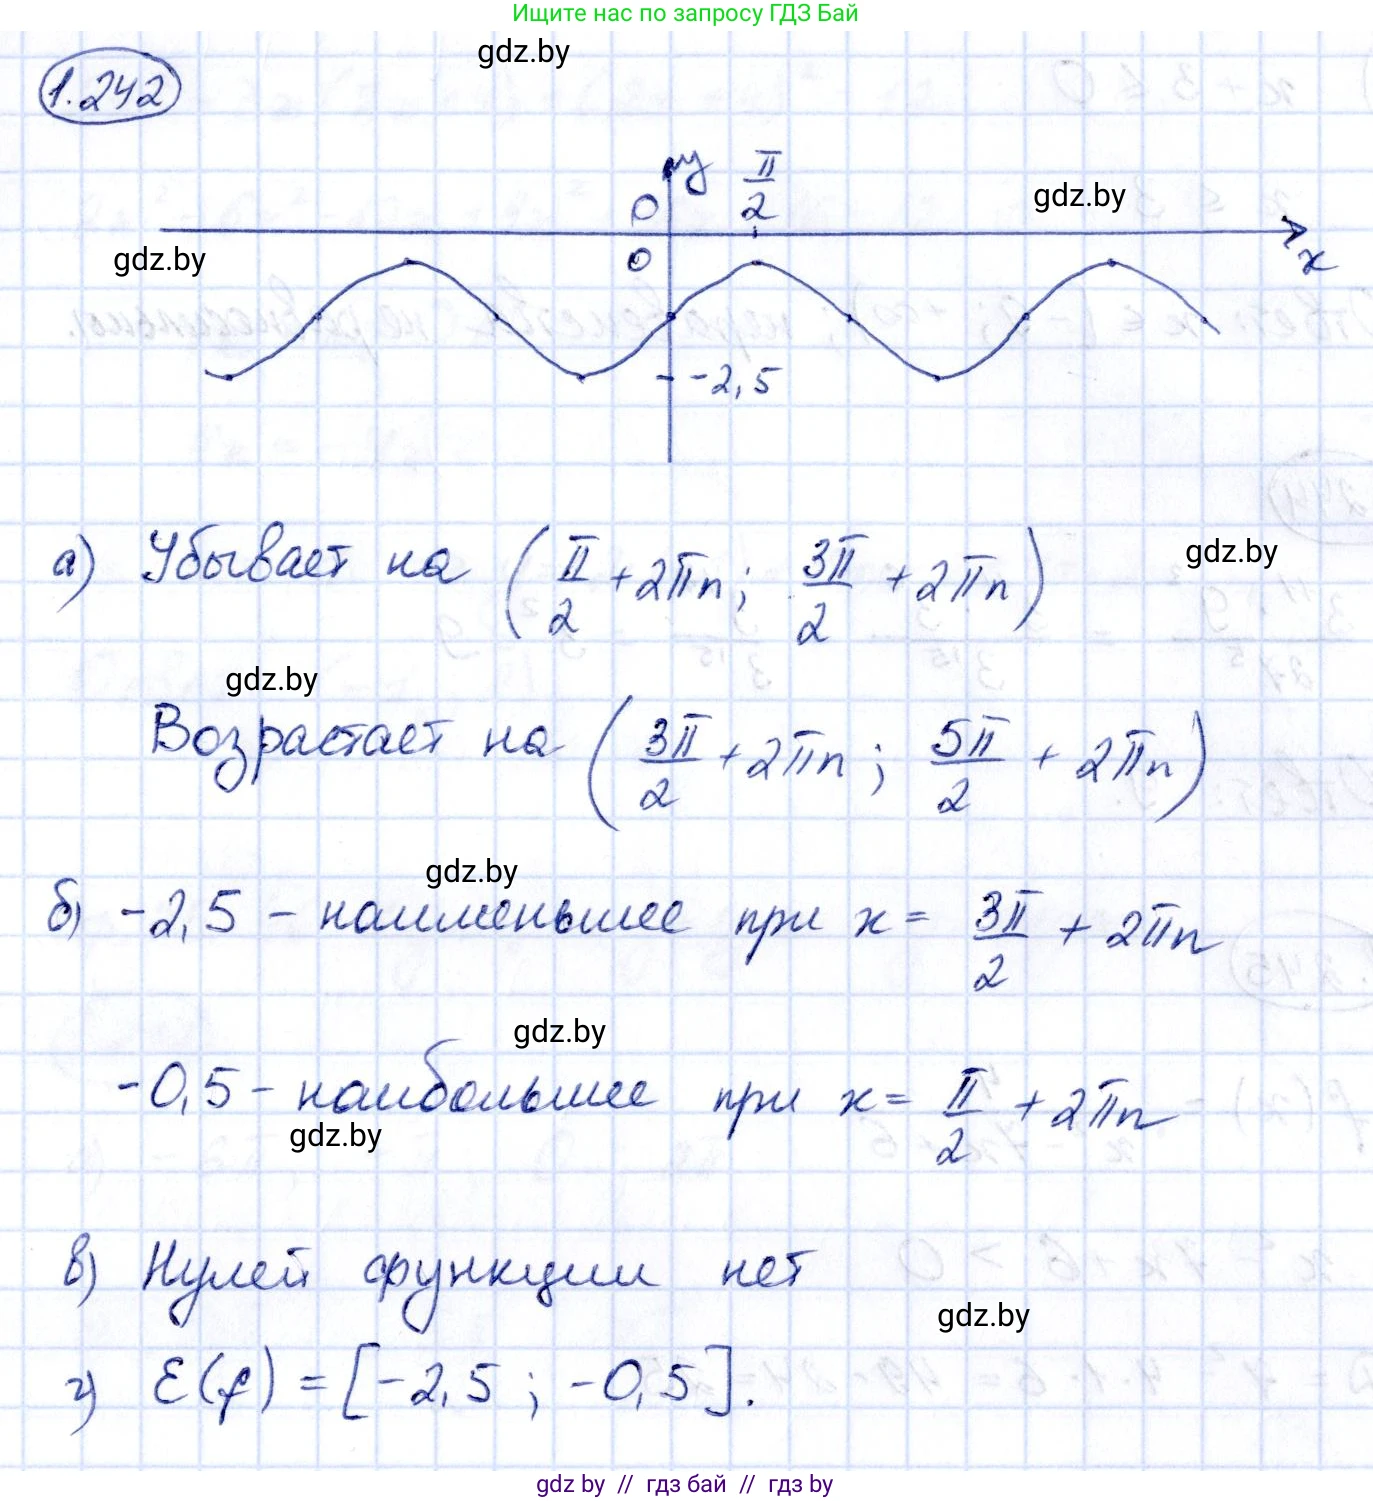 Ищите нас по запросу ГДЗ Бай
gdz.by
1.242
y
π/2
0
gdz.by
gdz.by
0
x
-2,5
а) Убывает на (π/2 + 2πn; 3π/2 + 2πn)
gdz.by
gdz.by
Возрастает на (3π/2 + 2πn; 5π/2 + 2πn)
gdz.by
б) -2,5 - наименьшее при x = 3π/2 + 2πn
gdz.by
-0,5 - наибольшее при x = π/2 + 2πn
gdz.by
в) Нулей функции нет
gdz.by
г) E(f) = [-2,5; -0,5].
gdz by // гдз бай // гдз by